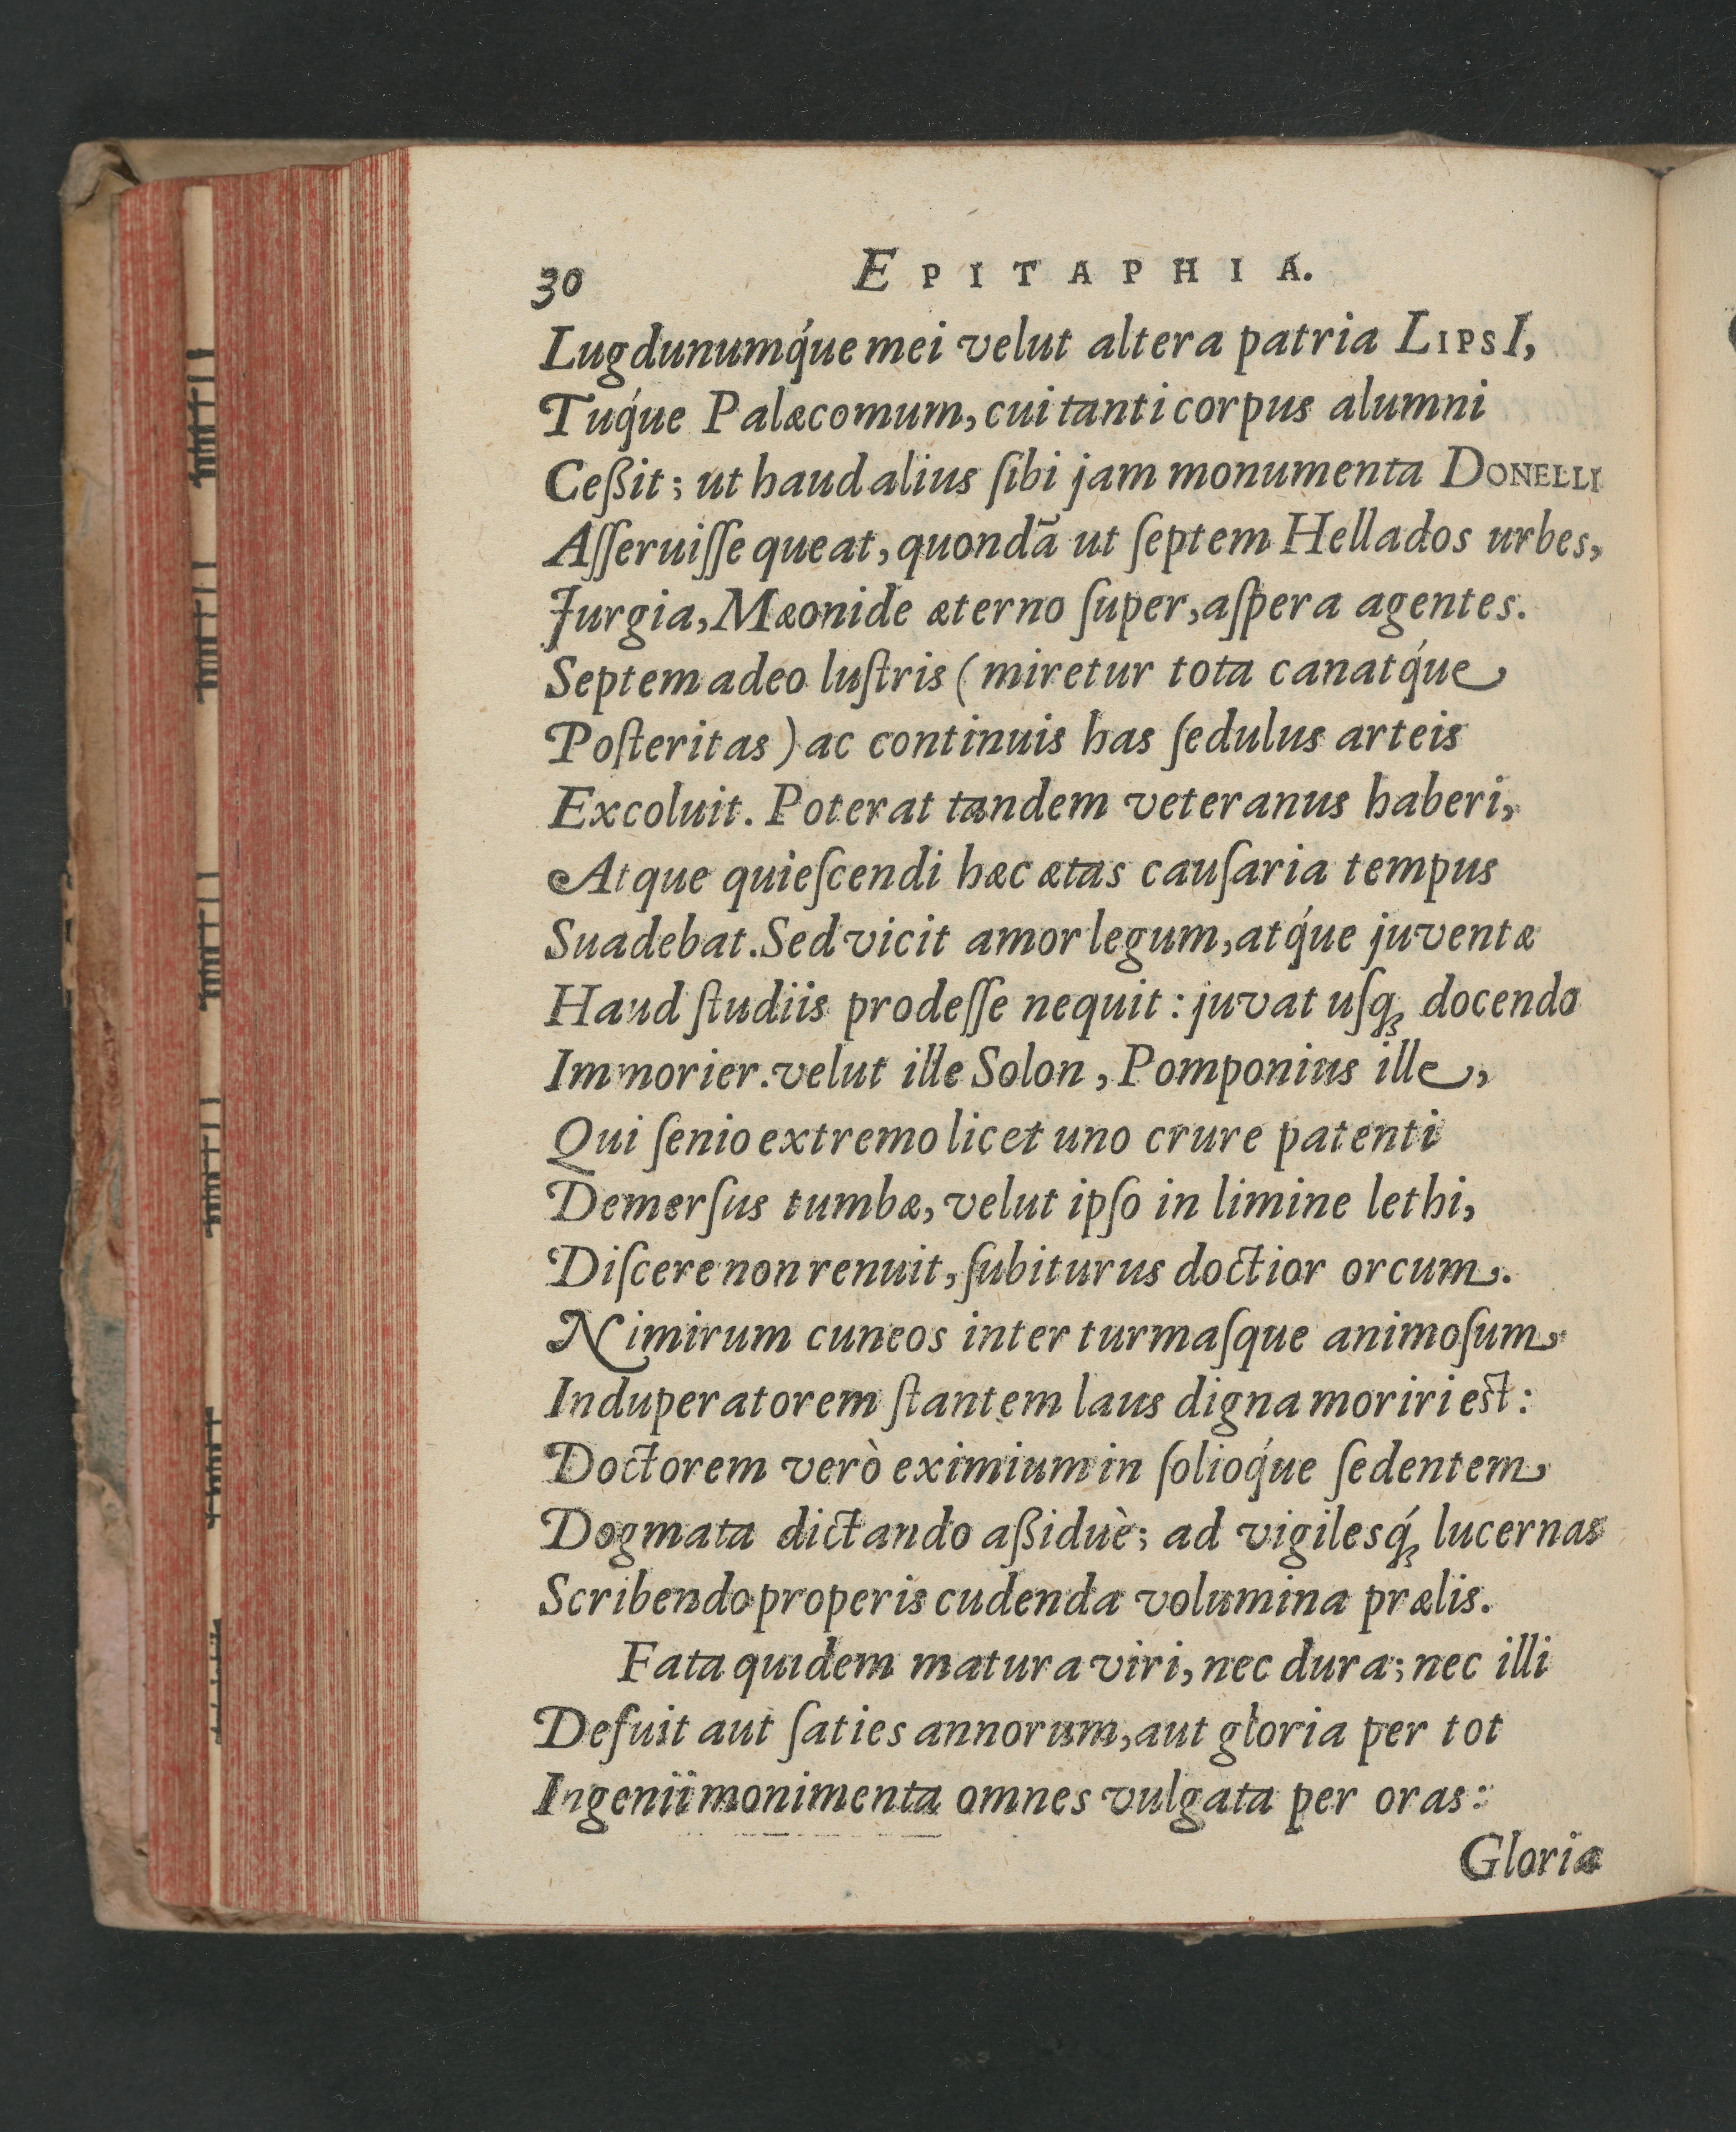 30 EPITAPHIA.
Lugdunumq́ue mei velut altera patria LIPSI,
Tuq́ue Palæcomum, cui tanti corpus alumni
Ceßit; ut haud alius ſibi jam monumenta DONELLI
Aſſeruiſſe queat, quondā ut ſeptem Hellados urbes,
Jurgia, Mæonide æterno ſuper, aſpera agentes.
Septem adeo luſtris (miretur tota canatq́ue
Poſteritas) ac continuis has ſedulus arteis
Excoluit. Poterat tandem veteranus haberi,
Atque quieſcendi hæc ætas cauſaria tempus
Suadebat. Sed vicit amor legum, atq́ue juventæ
Haud ſtudiis prodeſſe nequit: juvat uſqꝫ docendo
Immorier. velut ille Solon, Pomponius ille,
Qui ſenio extremo licet uno crure patenti
Demerſus tumbæ, velut ipſo in limine lethi,
Diſcere non renuit, ſubiturus doctior orcum.
Nimirum cuneos inter turmaſque animoſum
Induperatorem ſtantem laus digna moriri eſt:
Doctorem verò eximium in ſolioq́ue ſedentem
Dogmata dictando aßiduè; ad vigilesq́ꝫ lucernas
Scribendo properis cudenda volumina prælis.
Fata quidem matura viri, nec dura; nec illi
Defuit aut ſaties annorum, aut gloria per tot
Ingenii monimenta omnes vulgata per oras:
Gloria